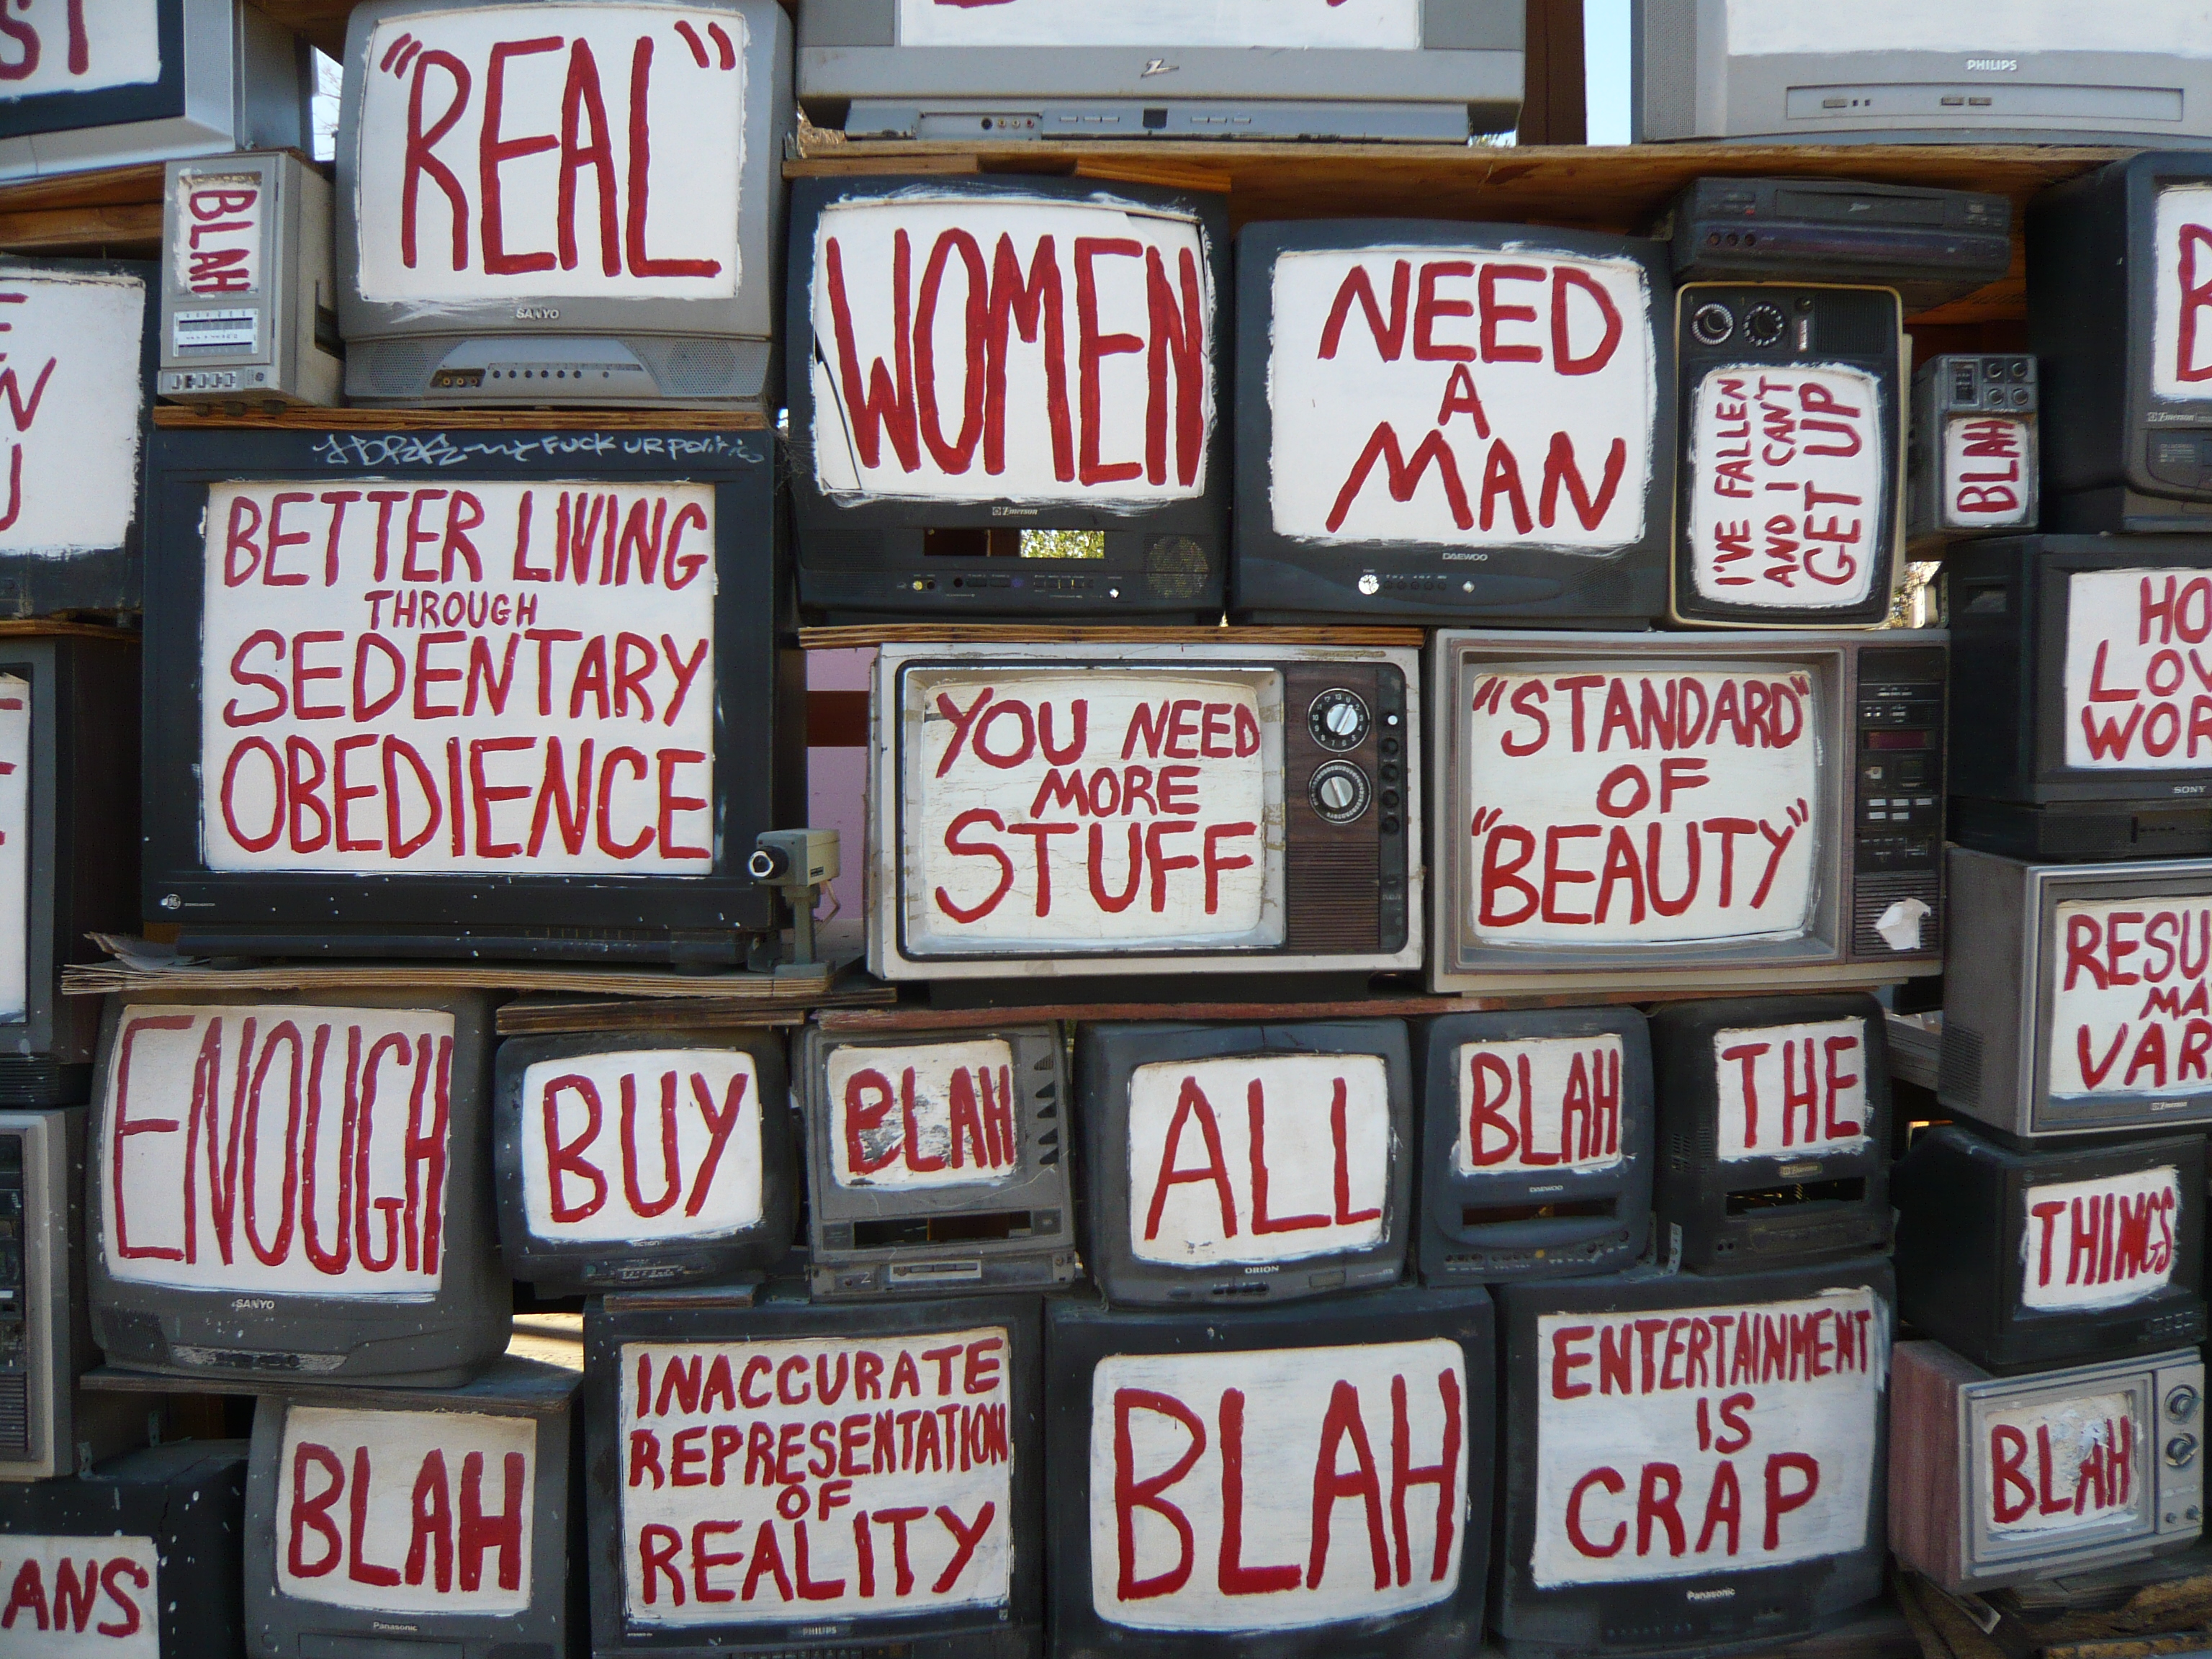 ST
"REAL"
SANYO
PHILIPS
BLAH
WOMEN
Emerson
NEED
A
MAN
DAEWOO
I'VE FALLEN
AND I CAN'T
GET UP
BLAH
B
Emerson
FUCK UR POLITIC
BETTER LIVING
THROUGH
SEDENTARY
OBEDIENCE
YOU NEED
MORE
STUFF
"STANDARD"
OF
"BEAUTY"
HO
LOV
WOR
SONY
RESU
MA
VAR
Emerson
ENOUGH
SANYO
BUY
BLAH
ALL
ORION
BLAH
DAEWOO
THE
Emerson
THINGS
ANS
BLAH
Panasonic
INACCURATE
REPRESENTATION
OF
REALITY
PHILIPS
BLAH
ENTERTAINMENT
IS
CRAP
Panasonic
BLAH